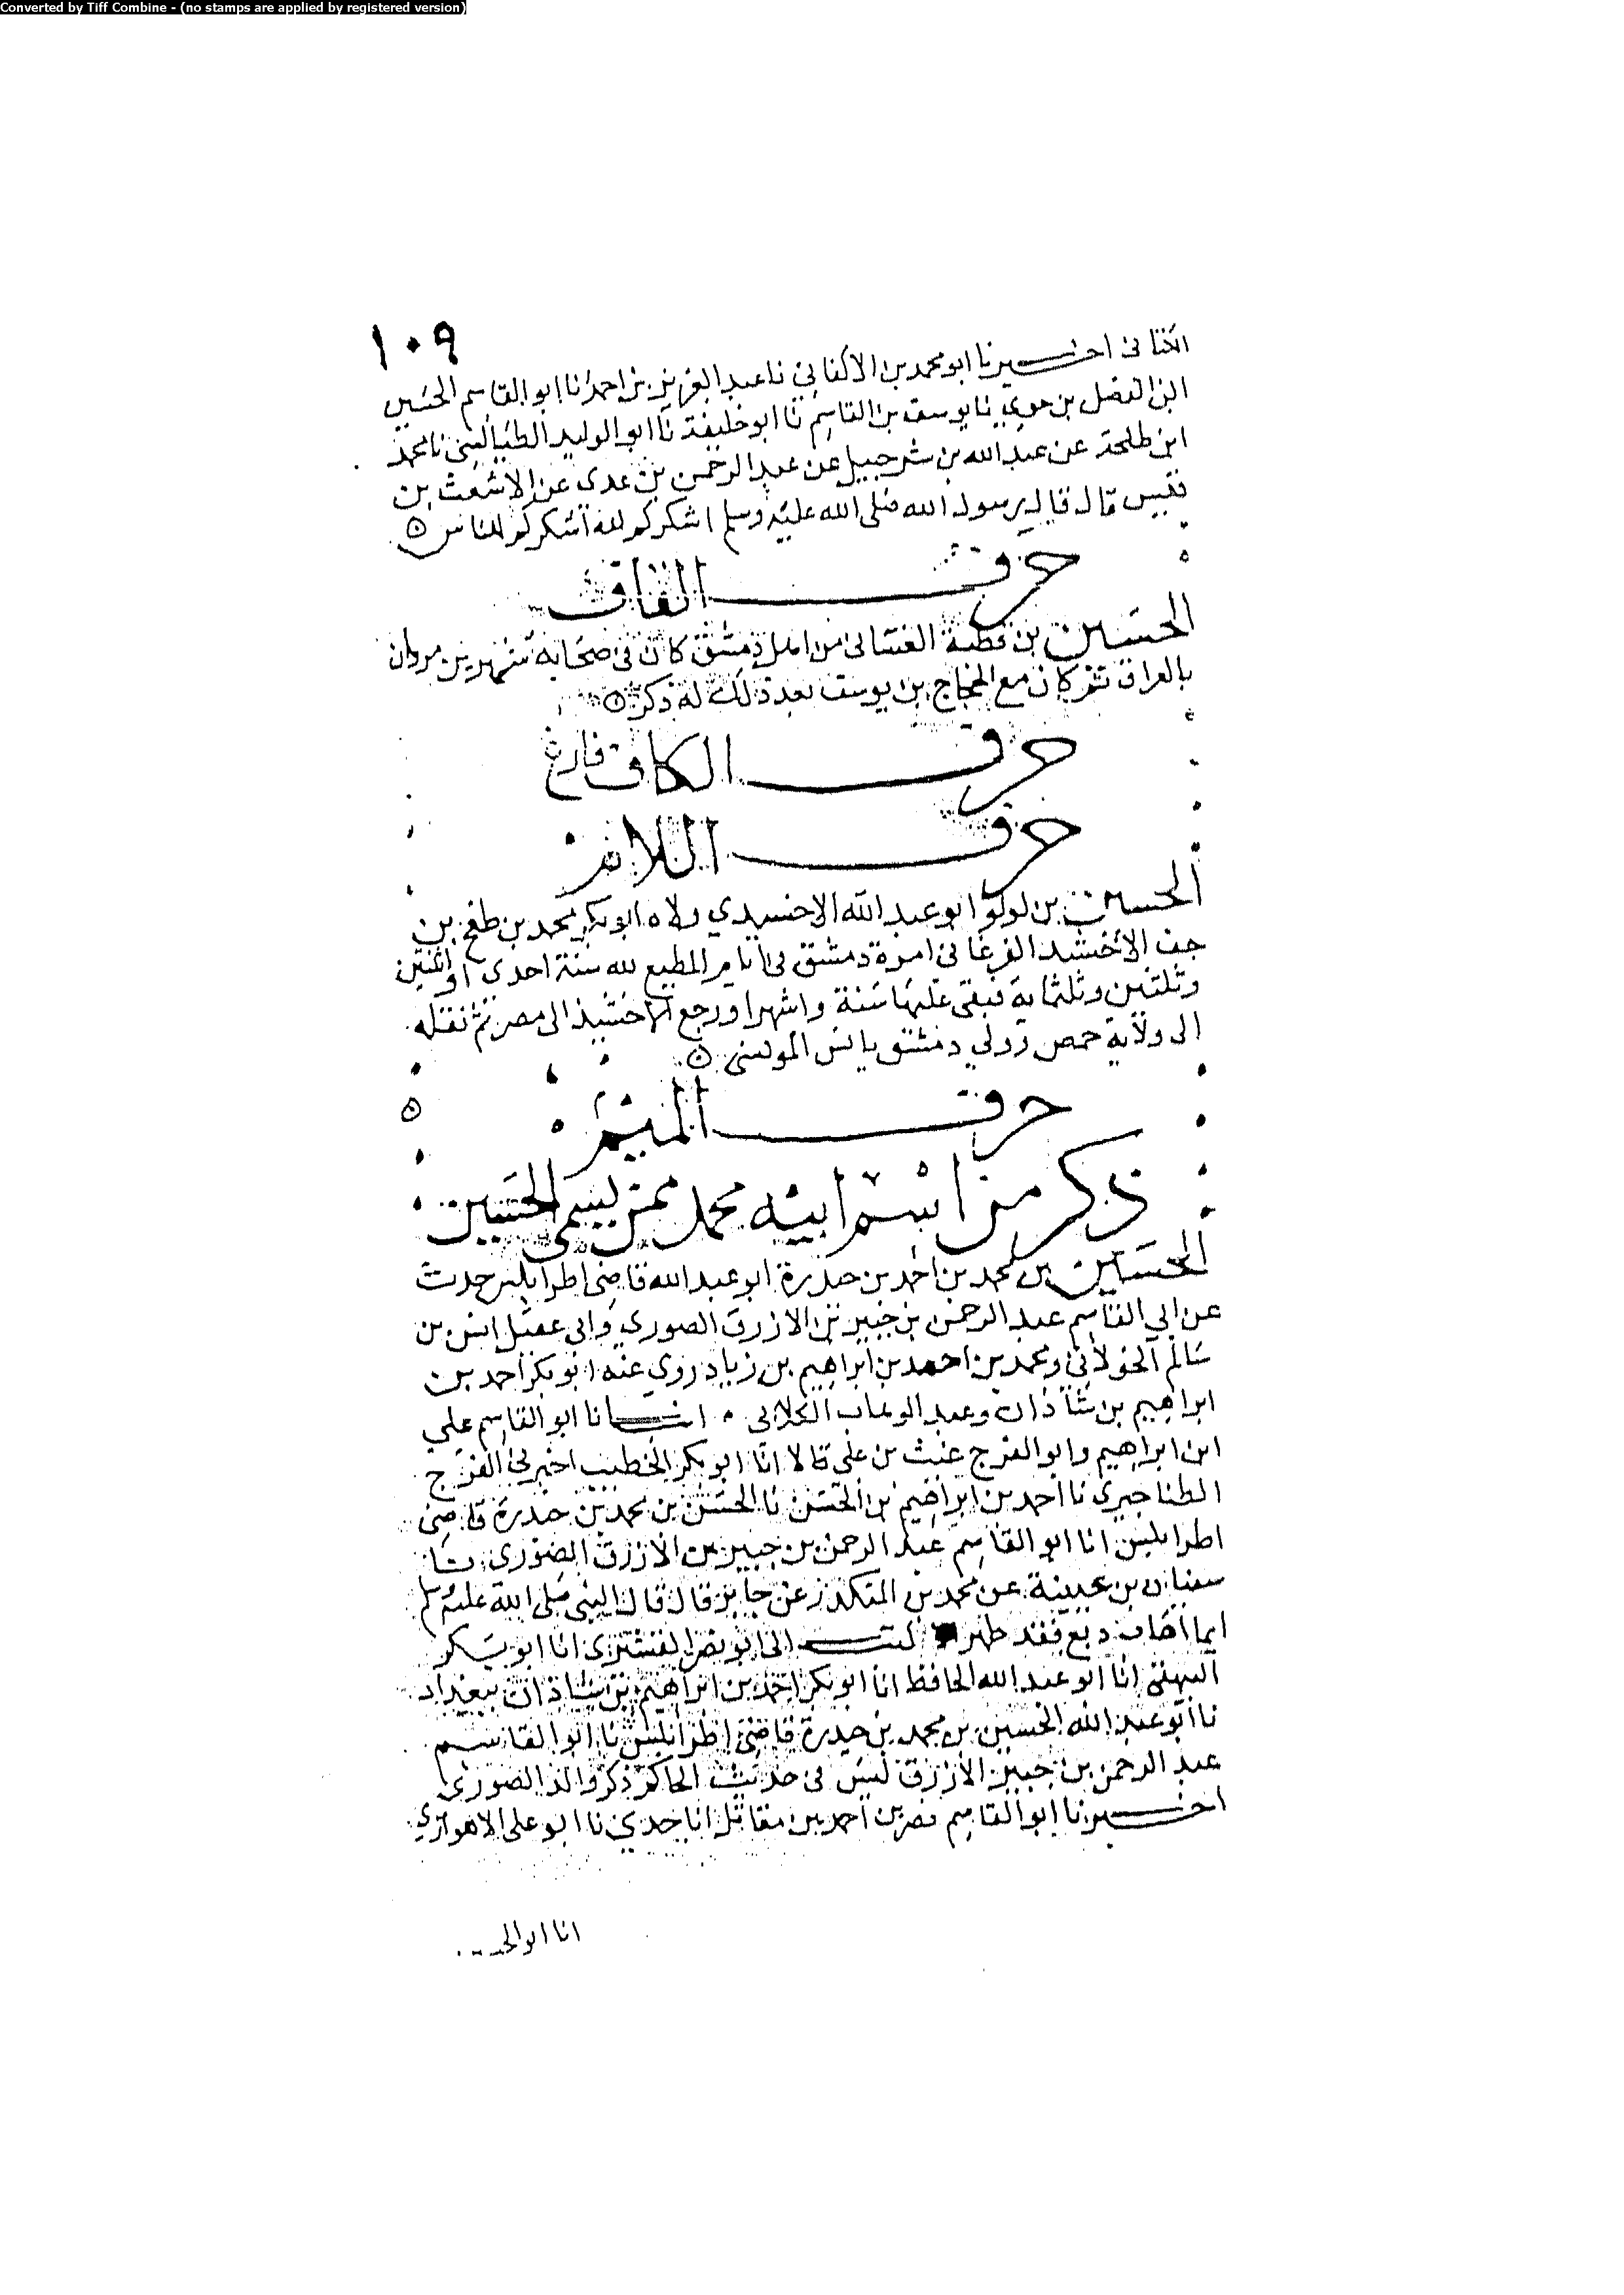 Converted by Tiff Combine - (no stamps are applied by registered version)
١٠٩
الكتانى اخبرنا ابو محمد بن الاكفاني نا عبد العزيز بن احمد انا ابو القاسم الحسين
ابن الفضل بن حوي نا يوسف بن القاسم نا ابو خليفة نا ابو الوليد الطيالسى نا محمد
ابن طلحة عن عبد الله بن شرحبيل عن عبد الرحمن بن عدى عن الاشعث بن
قيس قال قال رسول الله صلى الله عليه وسلم اشكركم لله اشكركم للناس
حرف القاف
الحسين بن قطبة الغسانى من اهل دمشق كان فى صحابه بن مروان
بالعراق ثم كان مع الحجاج بن يوسف بعد ذلك له ذكر
حرف الكاف فارغ
حرف اللام
الحسين بن لولو ابو عبد الله الاخشيدي ولاه ابو بكر محمد بن طغج بن
جف الاخشيد الفرغانى امرة دمشق فى ايام المطيع لله سنة احدى او اثنتين
وثلثين وثلثماية فبقى عليها سنة واشهرا ورجع الاخشيد الى مصر ثم نقله
الى ولاية حمص وولي دمشق يانس المونسى
حرف الميم
ذكر من اسم ابيه محمد ممن يسمى الحسين
الحسين بن محمد بن احمد بن حدرة ابو عبد الله قاضى اطرابلس حدث
عن ابي القاسم عبد الرحمن بن جبير بن الازرق الصوري وابى عقيل انس بن
سالم الخولاني ومحمد بن احمد بن ابراهيم بن زياد روي عنه ابو بكر احمد بن
ابراهيم بن شاذان وعبد الوهاب الكلابى انبانا ابو القاسم علي
ابن ابراهيم وابو الفرج غيث بن على قالا انا ابو بكر الخطيب اخبرنى الفرج
الطناجيري نا احمد بن ابراهيم بن الحسن نا الحسن بن محمد بن حدرة قاضى
اطرابلس انا ابو القاسم عبد الرحمن بن جبير بن الازرق الصورى نا
سفيان بن عيينة عن محمد بن المنكدر عن جابر قال قال النبى صلى الله عليه وسلم
ايما اهاب دبغ فقد طهر كتب الى ابو نصر القشيرى انا ابو بكر
البيهقى انا ابو عبد الله الحافظ انا ابو بكر احمد بن ابراهيم بن شاذان ببغداد
نا ابو عبد الله الحسين بن محمد بن حدرة قاضى اطرابلس نا ابو القاسم
عبد الرحمن بن جبير الازرق ليس فى حديث الحاكم ذكر الصورى
اخبرنا ابو القاسم نصر بن احمد بن مقاتل انا جدي نا ابو على الاهوازي
انا ابو